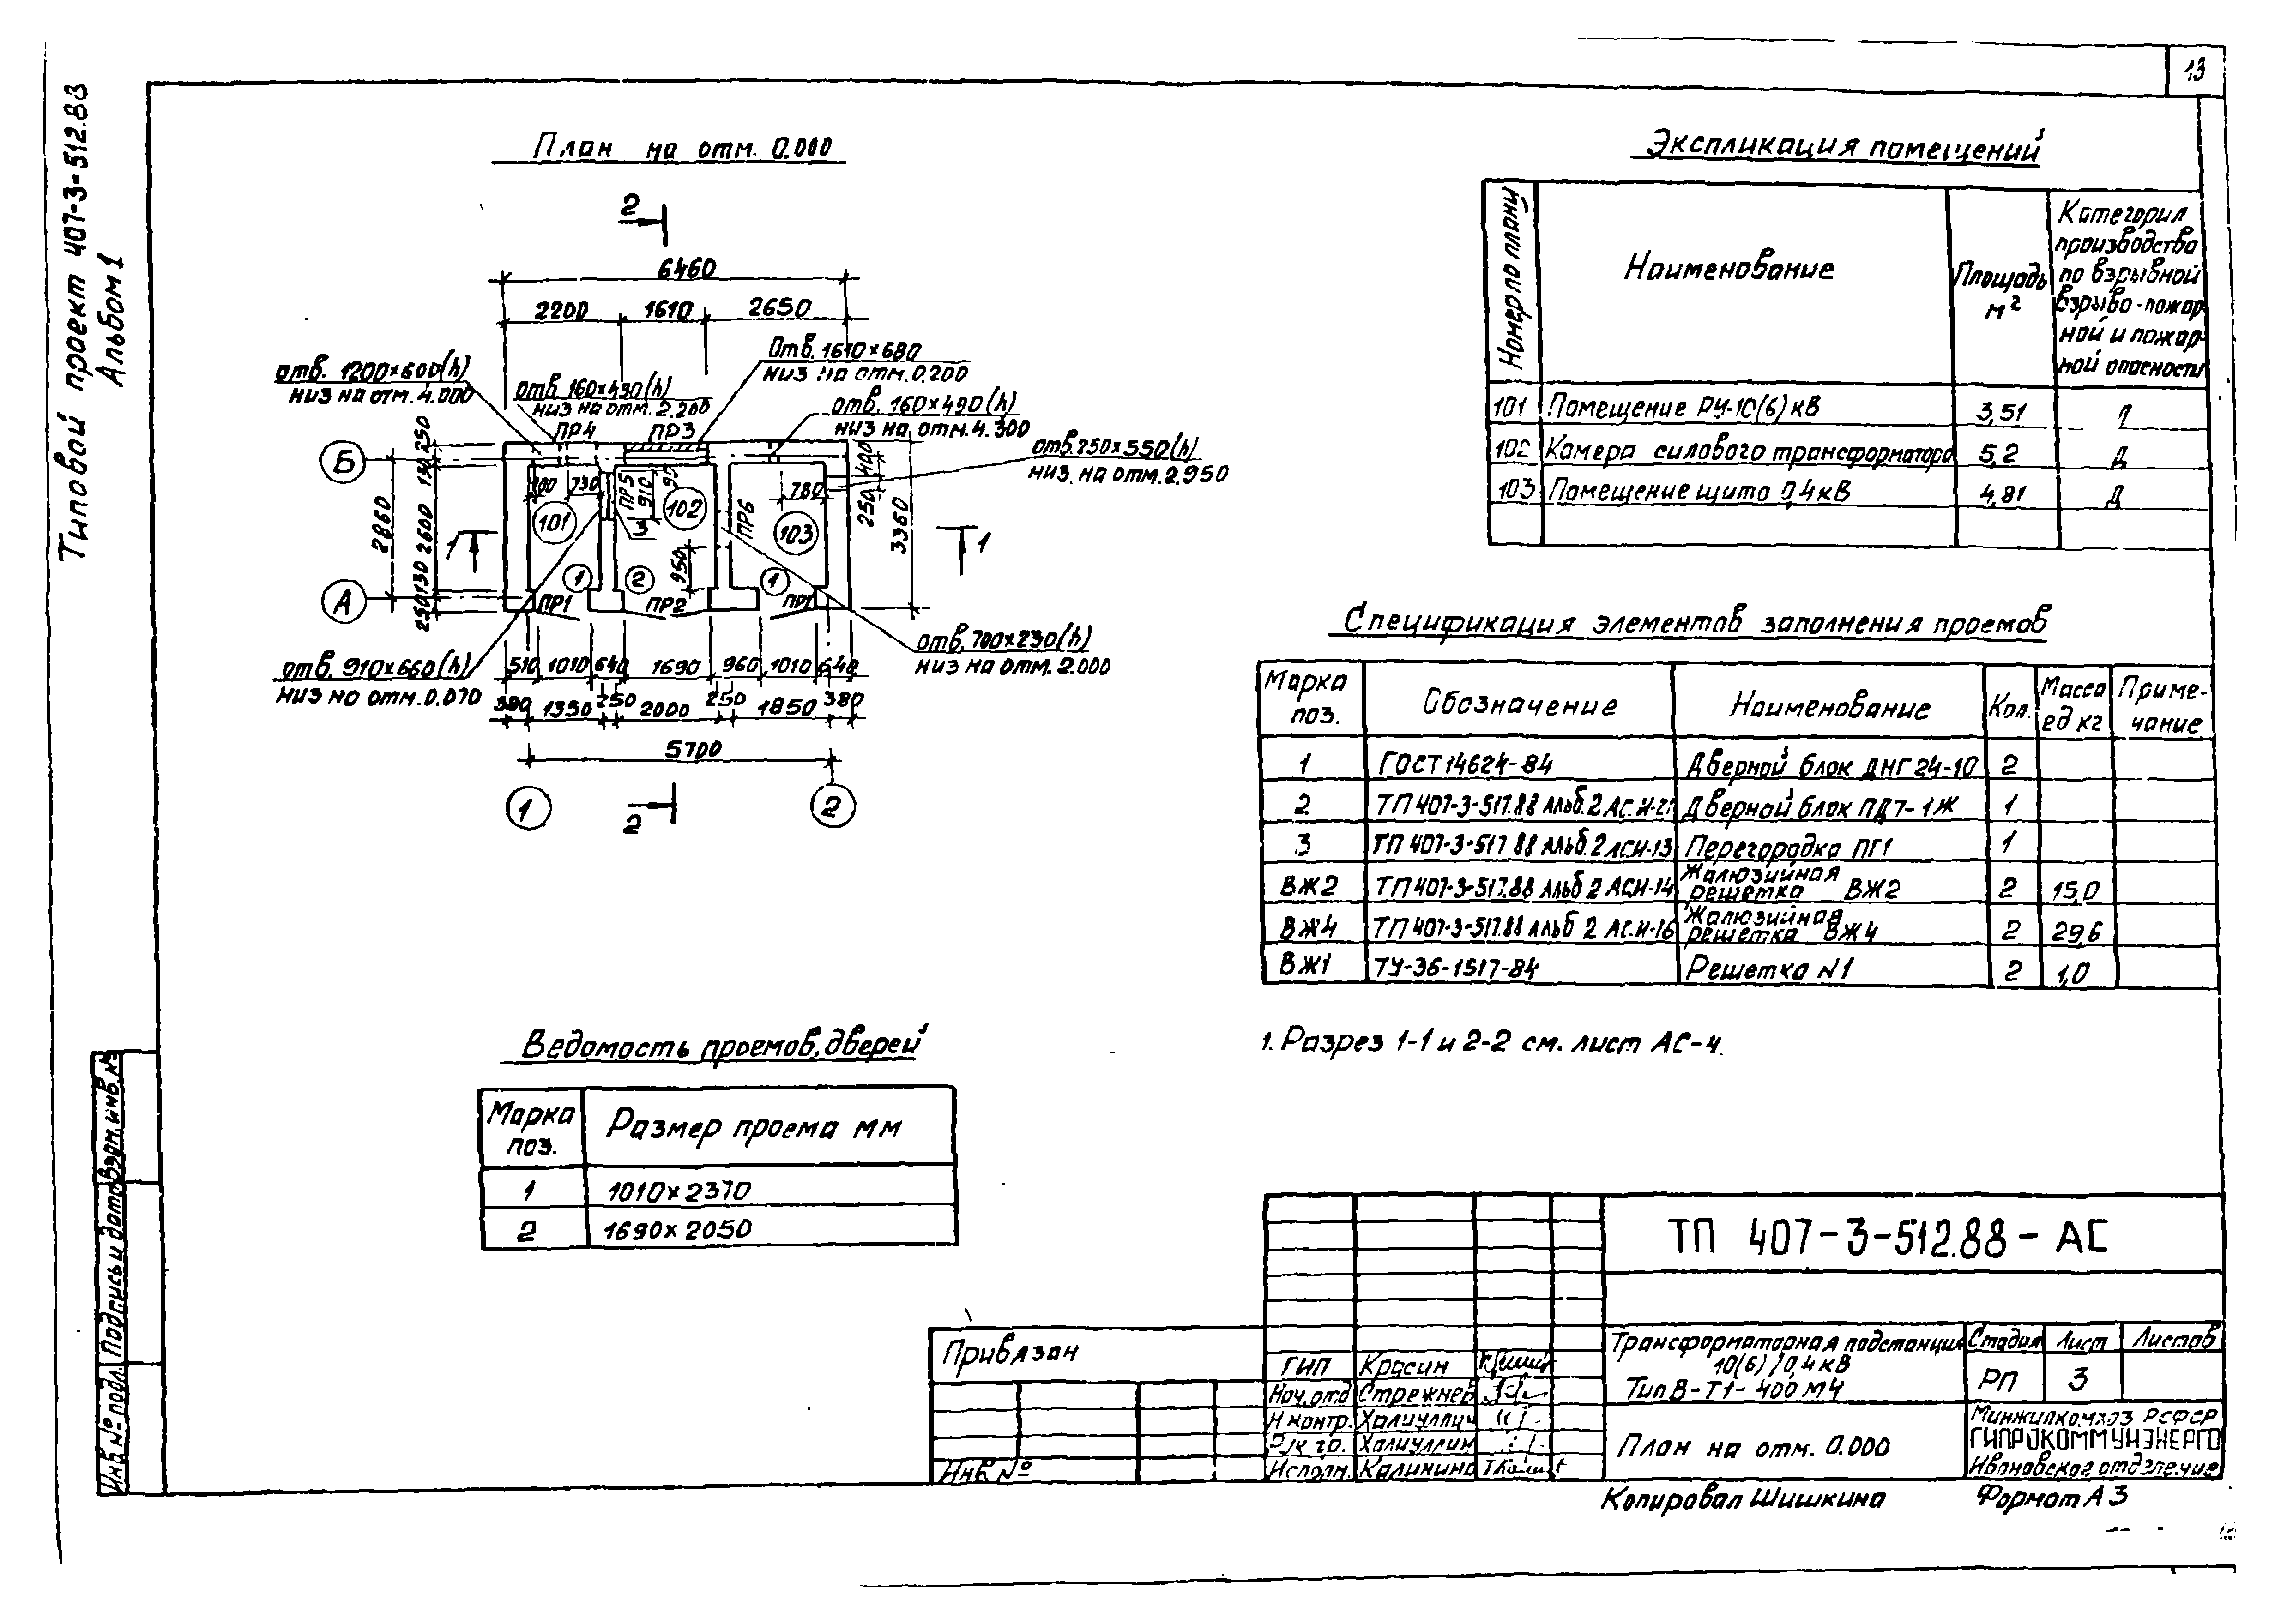 13
Типовой проект 407-3-512.88
Альбом 1
План на отм. 0.000
2
6460
2200 1610 2650
отв. 1200×600(h)
низ на отм. 4.000
отв. 160×490(h)
низ на отм. 2.200
Отв. 1610×680
низ на отм. 0.200
отв. 160×490(h)
низ на отм. 4.300
отв. 250×550(h)
низ на отм. 2.950
ПР4 ПР3
Б
250
130
2600
130
250
2860
730
ПР5
910
3
101 102 103
ПР6
780
400
250
3360
950
1 1
1 2 1
А
ПР1 ПР2 ПР1
отв. 700×230(h)
низ на отм. 2.000
отв. 910×660(h)
низ на отм. 0.070
510 1010 640 1690 960 1010 640
380 1350 250 2000 250 1850 380
5700
1 2
2
Экспликация помещений
Номер по плану
Наименование
Площадь м²
Категория производства по взрывной взрыво-пожарной и пожарной опасности
101 Помещение РУ-10(6) кВ 3,51
102 Камера силового трансформатора 5,2 Д
103 Помещение щита 0,4 кВ 4,81 Д
Спецификация элементов заполнения проемов
Марка поз. Обозначение Наименование Кол. Масса ед кг Примечание
1 ГОСТ 14624-84 Дверной блок ДНГ 24-10 2
2 ТП 407-3-517.88 Альб. 2 АС.И-21 Дверной блок ПД7-1Ж 1
3 ТП 407-3-517.88 Альб. 2 АС.И-13 Перегородка ПГ1 1
ВЖ2 ТП 407-3-517.88 Альб 2 АСИ-14 Жалюзийная решетка ВЖ2 2 15,0
ВЖ4 ТП 407-3-517.88 Альб 2 АС.И-16 Жалюзийная решетка ВЖ4 2 29,6
ВЖ1 ТУ-36-1517-84 Решетка N1 2 1,0
1. Разрез 1-1 и 2-2 см. лист АС-4.
Ведомость проемов, дверей
Марка поз. Размер проема мм
1 1010×2370
2 1690×2050
Взам. инв. №
Подпись и дата
Инв № подл.
ТП 407-3-512.88-АС
Привязан
Инв №
ГИП Красин
Нач. отд Стрежнев
Н контр. Халиуллин
Рук гр. Халиуллин
Исполн. Калинина
Трансформаторная подстанция
10(6)/0,4 кВ
Тип В-Т1-400 М4
Стадия Лист Листов
РП 3
План на отм. 0.000
Минжилкомхоз РСФСР
ГИПРОКОММУНЭНЕРГО
Ивановское отделение
Копировал Шишкина
Формат А3